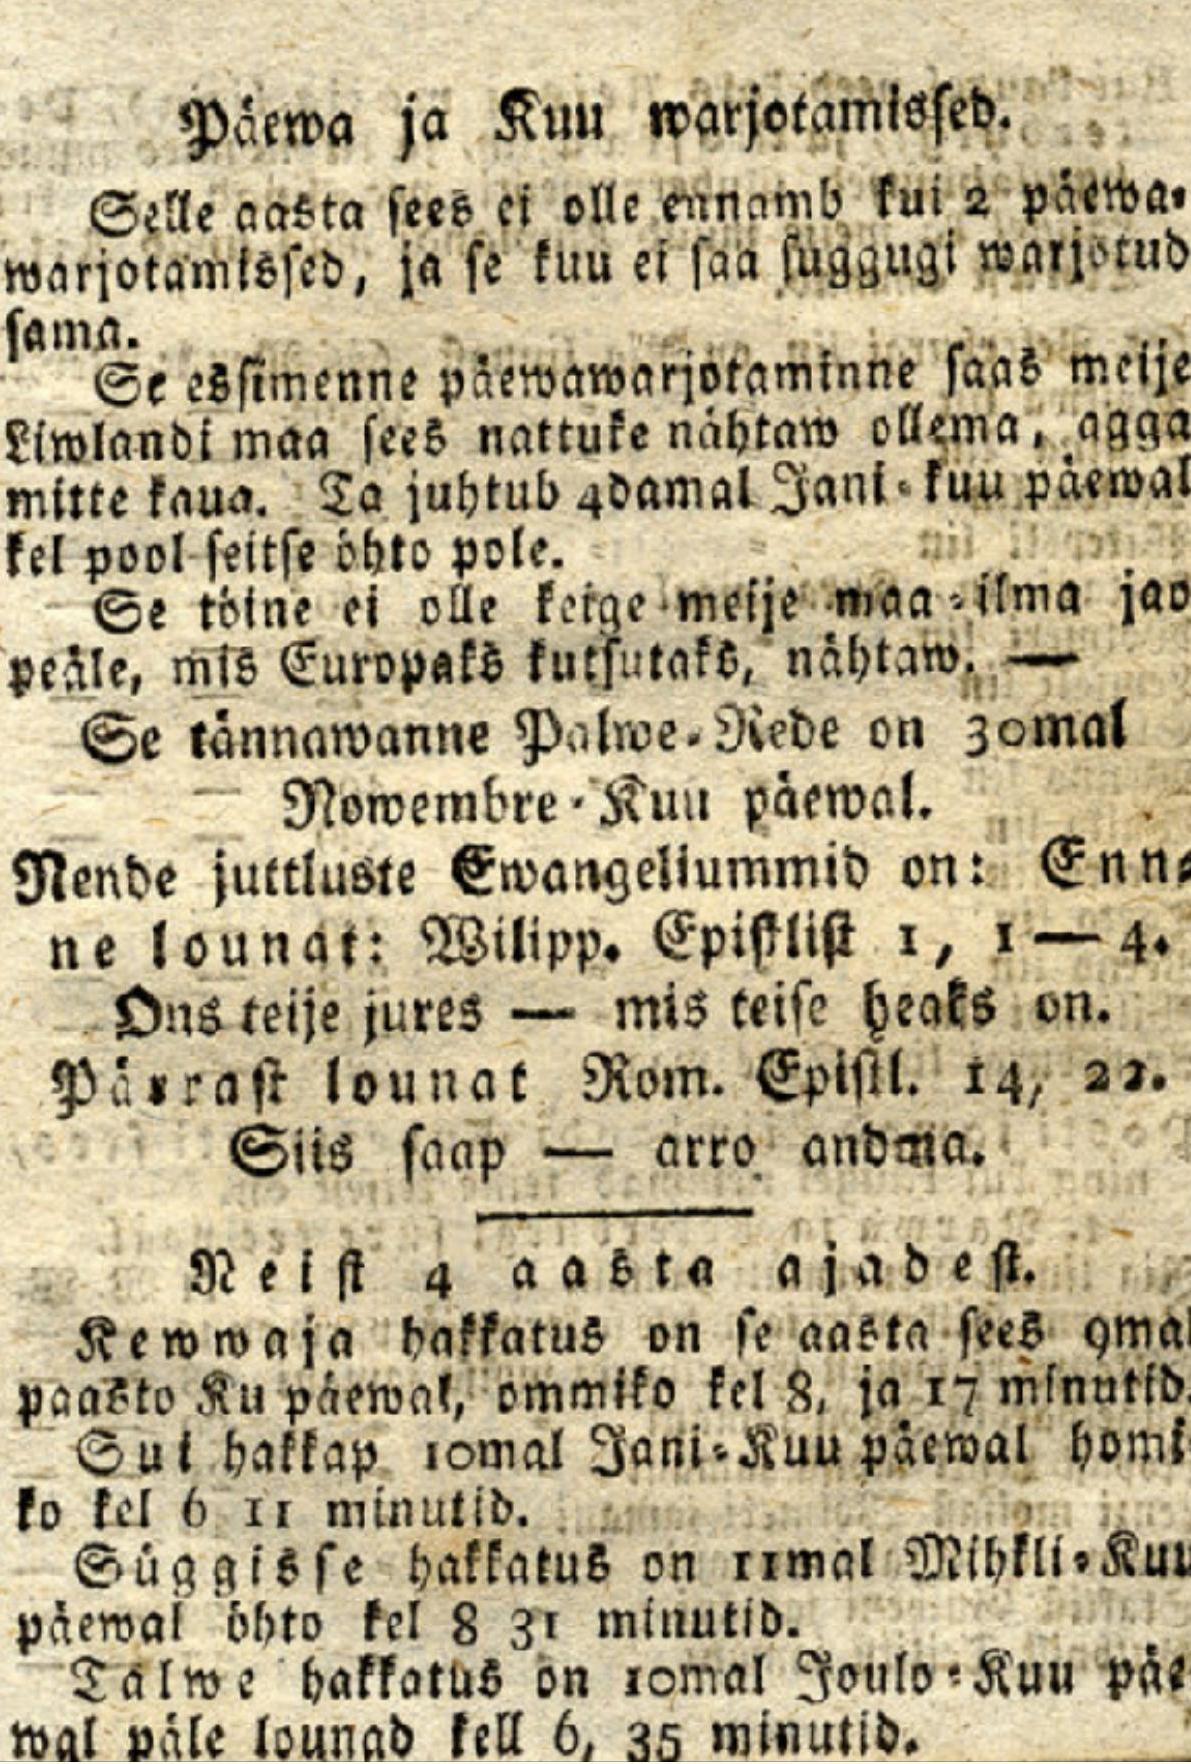 Päewa ja Kuu warjotamissed.
Selle aasta sees ei olle ennamb kui 2 päewa-
warjotamissed, ja se kuu ei saa suggugi warjotud
sama.
Se essimenne päewawarjotaminne saas meije
Liwlandi maa sees nattuke nähtaw ollema, agga
mitte kaua. Ta juhtub 4damal Jani-kuu päewal
kel pool seitse öhto pole.
Se töine ei olle keige meije maa-ilma jao
peäle, mis Europaks kutsutaks, nähtaw. —
Se tännawanne Palwe-Rede on 30mal
Nowembre-Kuu päewal.
Nende juttluste Ewangeliummid on: Enn-
ne lounat: Wilipp. Epistlist 1, 1 — 4.
Ons teije jures — mis teise heaks on.
Pärrast lounat Rom. Epistl. 14, 22.
Siis saap — arro andma.
Neist 4 aasta ajadest.
Kewwaja hakkatus on se aasta sees 9mal
paasto Ku päewal, ommiko kel 8, ja 17 minutid.
Sui hakkap 10mal Jani-Kuu päewal homi-
ko kel 6 11 minutid.
Süggisse hakkatus on 11mal Mihkli-Kuu
päewal öhto kel 8 31 minutid.
Talwe hakkatus on 10mal Joulo-Kuu päe-
wal päle lounad kell 6, 35 minutid.